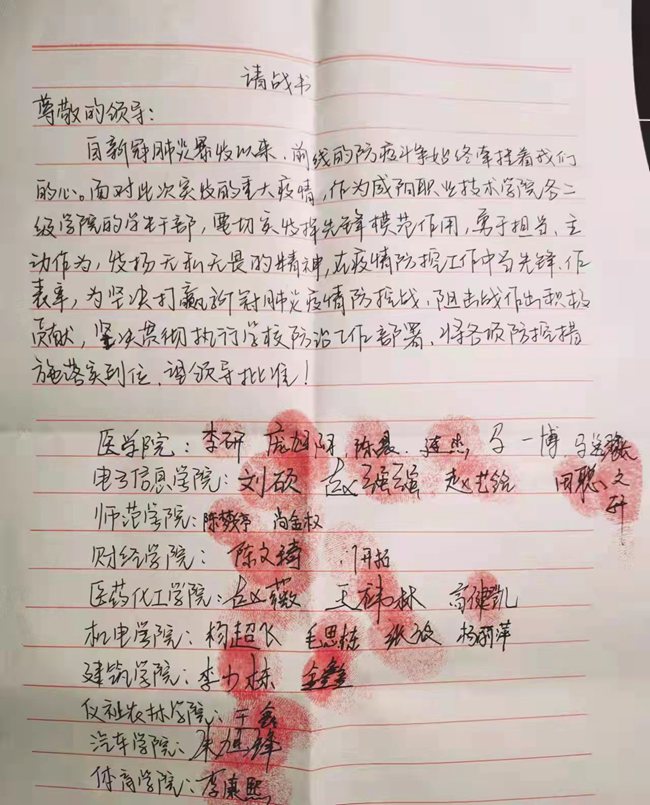 请战书
尊敬的领导:
自新冠肺炎暴发以来,前线的防疫斗争始终牵挂着我们
的心。面对此次突发的重大疫情,作为咸阳职业技术学院各二
级学院的学生干部,要切实发挥先锋模范作用,勇于担当、主
动作为,发扬无私无畏的精神,在疫情防控工作中当先锋、作
表率,为坚决打赢新冠肺炎疫情防控战、阻击战作出积极
贡献,坚决贯彻执行学校防治工作部署,将各项防控措
施落实到位,请领导批准!
医学院:李研 庞旭阳 一博
电子信息学院:刘硕 赵强强 赵艺绘 田聪
师范学院:陈梦婷 尚金权
财经学院:陈文琦 开拓
医药化工学院:赵薇 王祎林 高健凯
机电学院:杨超飞 毛思栋 张放 杨莉萍
建筑学院:李力栋 金鑫
农林学院:于鑫
汽车学院:朱旭锋
体育学院:李康熙